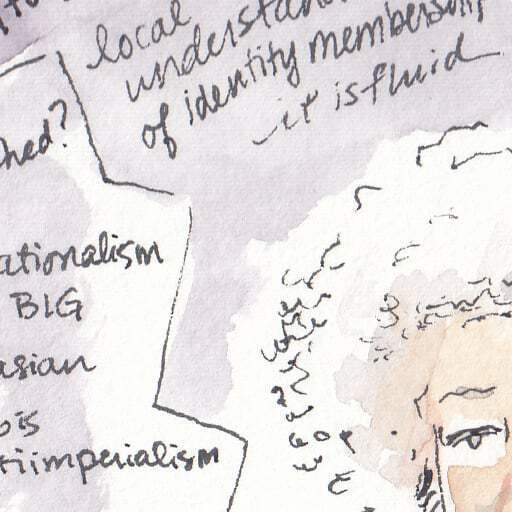 local
understan
of identity membership
it is fluid
hed?
ationalism
BIG
asian
ois
tiimperialism